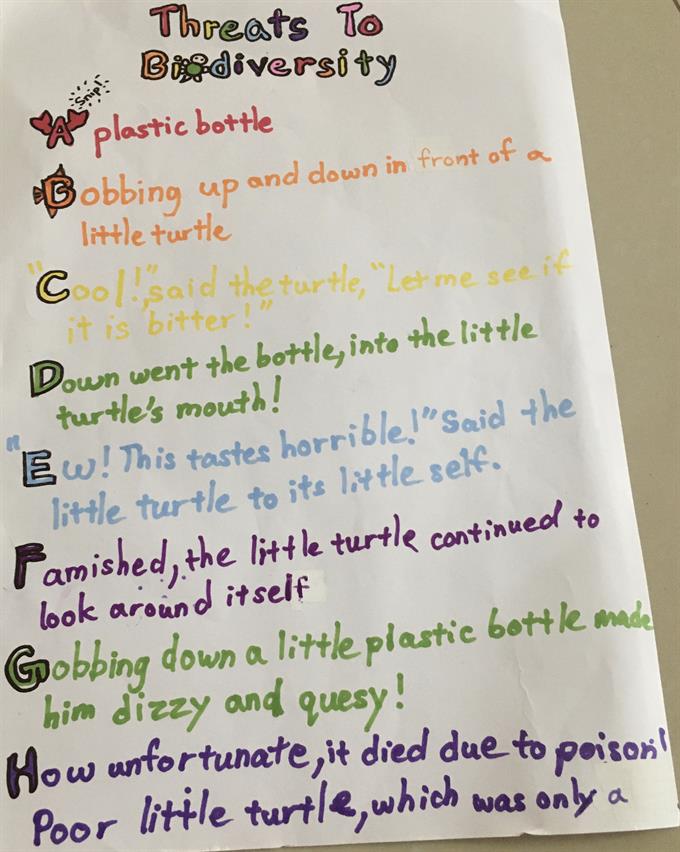 Threats To
Biodiversity
Snip!
A plastic bottle
Bobbing up and down in front of a
little turtle
"Cool!", said the turtle, "Let me see if
it is bitter!"
Down went the bottle, into the little
turtle's mouth!
"Ew! This tastes horrible!" Said the
little turtle to its little self.
Famished, the little turtle continued to
look around itself
Gobbing down a little plastic bottle made
him dizzy and quesy!
How unfortunate, it died due to poison!
Poor little turtle, which was only a